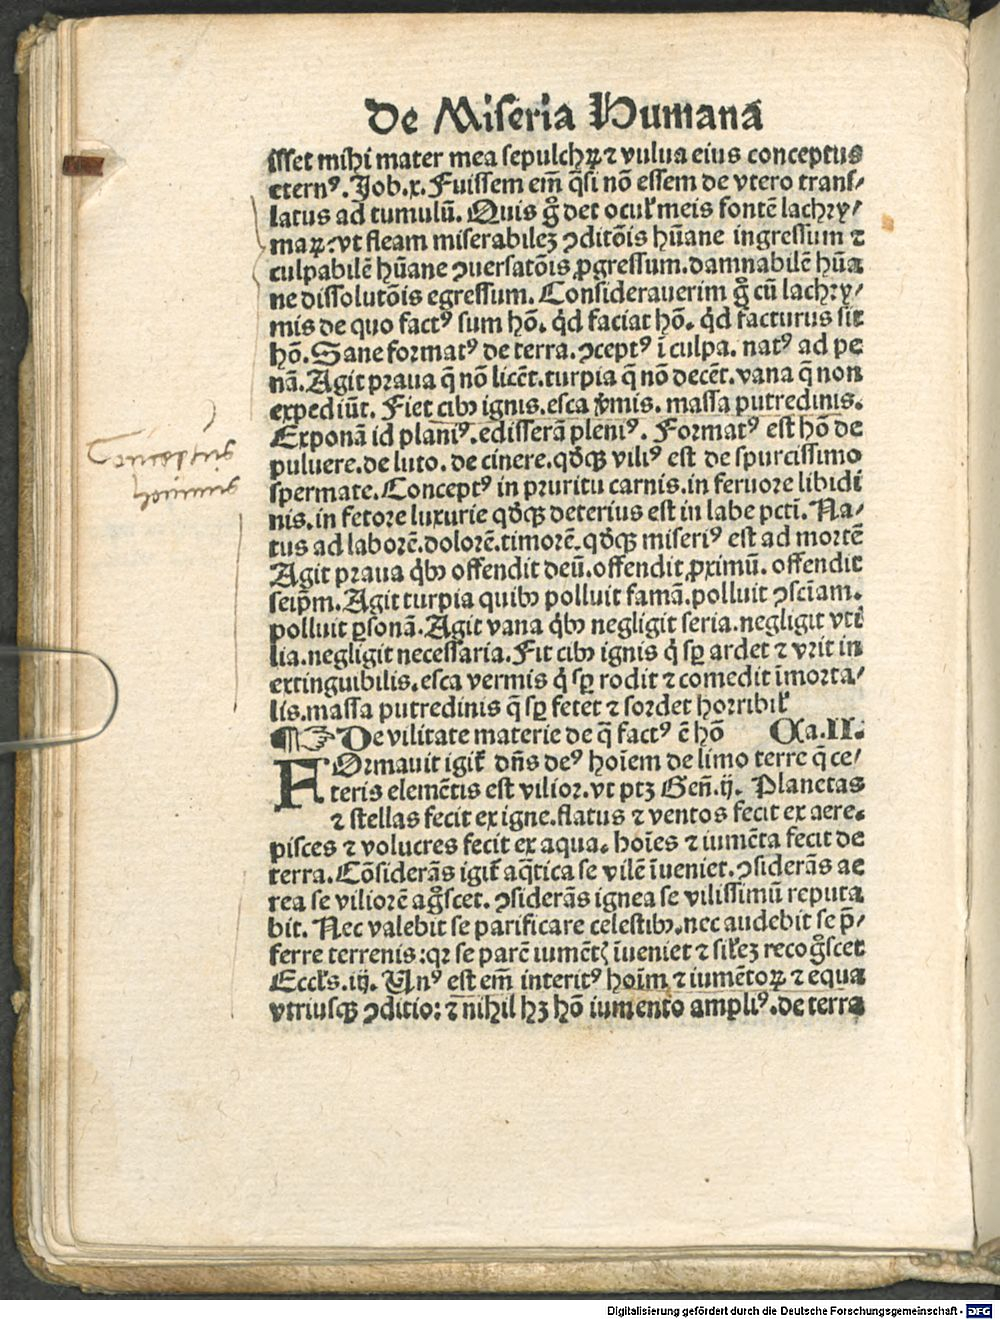 De Miseria Humana
isset mihi mater mea sepulchꝝ ⁊ vulua eius conceptus
eternꝰ. Job.x. Fuissem em̄ q̄si nō essem de vtero trans⸗
latus ad tumulū. Quis gͦ det ocul̓ meis fontē lachry⸗
maꝝ: vt fleam miserabileꝫ ꝯditōis hūane ingressum ⁊
culpabilē hūane ꝯuersatōis ꝓgressum. damnabilē hūa
ne dissolutōis egressum. Considerauerim gͦ cū lachry⸗
mis de quo factꝰ sum hō. qͥd faciat hō. qͥd facturus sit
hō. Sane formatꝰ de terra. ꝯceptꝰ ī culpa. natꝰ ad pe
nā. Agit praua q̄ nō licēt. turpia q̄ nō decēt. vana q̄ non
expediūt. Fiet cibꝰ ignis. esca v̓mis. massa putredinis.
Exponā id planiꝰ. edisserā pleniꝰ. Formatꝰ est hō de
puluere. de luto. de cinere. qͦdqꝫ viliꝰ est de spurcissimo
spermate. Conceptꝰ in pruritu carnis. in feruore libidi
nis. in fetore luxurie qͦdqꝫ deterius est in labe pcti. Na⸗
tus ad laborē. dolorē. timorē. qͦdqꝫ miseriꝰ est ad mortē
Agit praua qͥbꝰ offendit deū. offendit ꝓximū. offendit
seip̄m. Agit turpia quibꝰ polluit famā. polluit ꝯsciam.
polluit ꝑsonā. Agit vana qͥbꝰ negligit seria. negligit vti
lia. negligit necessaria. Fit cibꝰ ignis qͥ sꝑ ardet ⁊ vrit in
extinguibilis. esca vermis qͥ sꝑ rodit ⁊ comedit īmorta⸗
lis. massa putredinis q̄ sꝑ fetet ⁊ sordet horribil̓
¶☞ De vilitate materie de q̄ factꝰ ē hō Ca.II.
FOrmauit igit̓ dn̄s deꝰ hoīem de limo terre q̄ ce⸗
teris elemētis est vilior. vt ptꝫ Gen̄.ij. Planetas
⁊ stellas fecit ex igne. flatus ⁊ ventos fecit ex aere.
pisces ⁊ volucres fecit ex aqua. hoīes ⁊ iumēta fecit de
terra. Cōsiderās igit̓ aq̄tica se vilē īueniet. ꝯsiderās ae
rea se viliorē agͦscet. ꝯsiderās ignea se vilissimū reputa
bit. Nec valebit se parificare celestibꝰ. nec audebit se p̄⸗
ferre terrenis: qꝛ se parē iumētꝭ īueniet ⁊ sil̓eꝫ recogͦscet
Eccl̓s.iij. Vnꝰ est em̄ interitꝰ hoīm ⁊ iumētoꝝ ⁊ equa
vtriusqꝫ ꝯditio: ⁊ nihil hꝫ hō iumento ampliꝰ. de terra
hominis
Digitalisierung gefördert durch die Deutsche Forschungsgemeinschaft - DFG